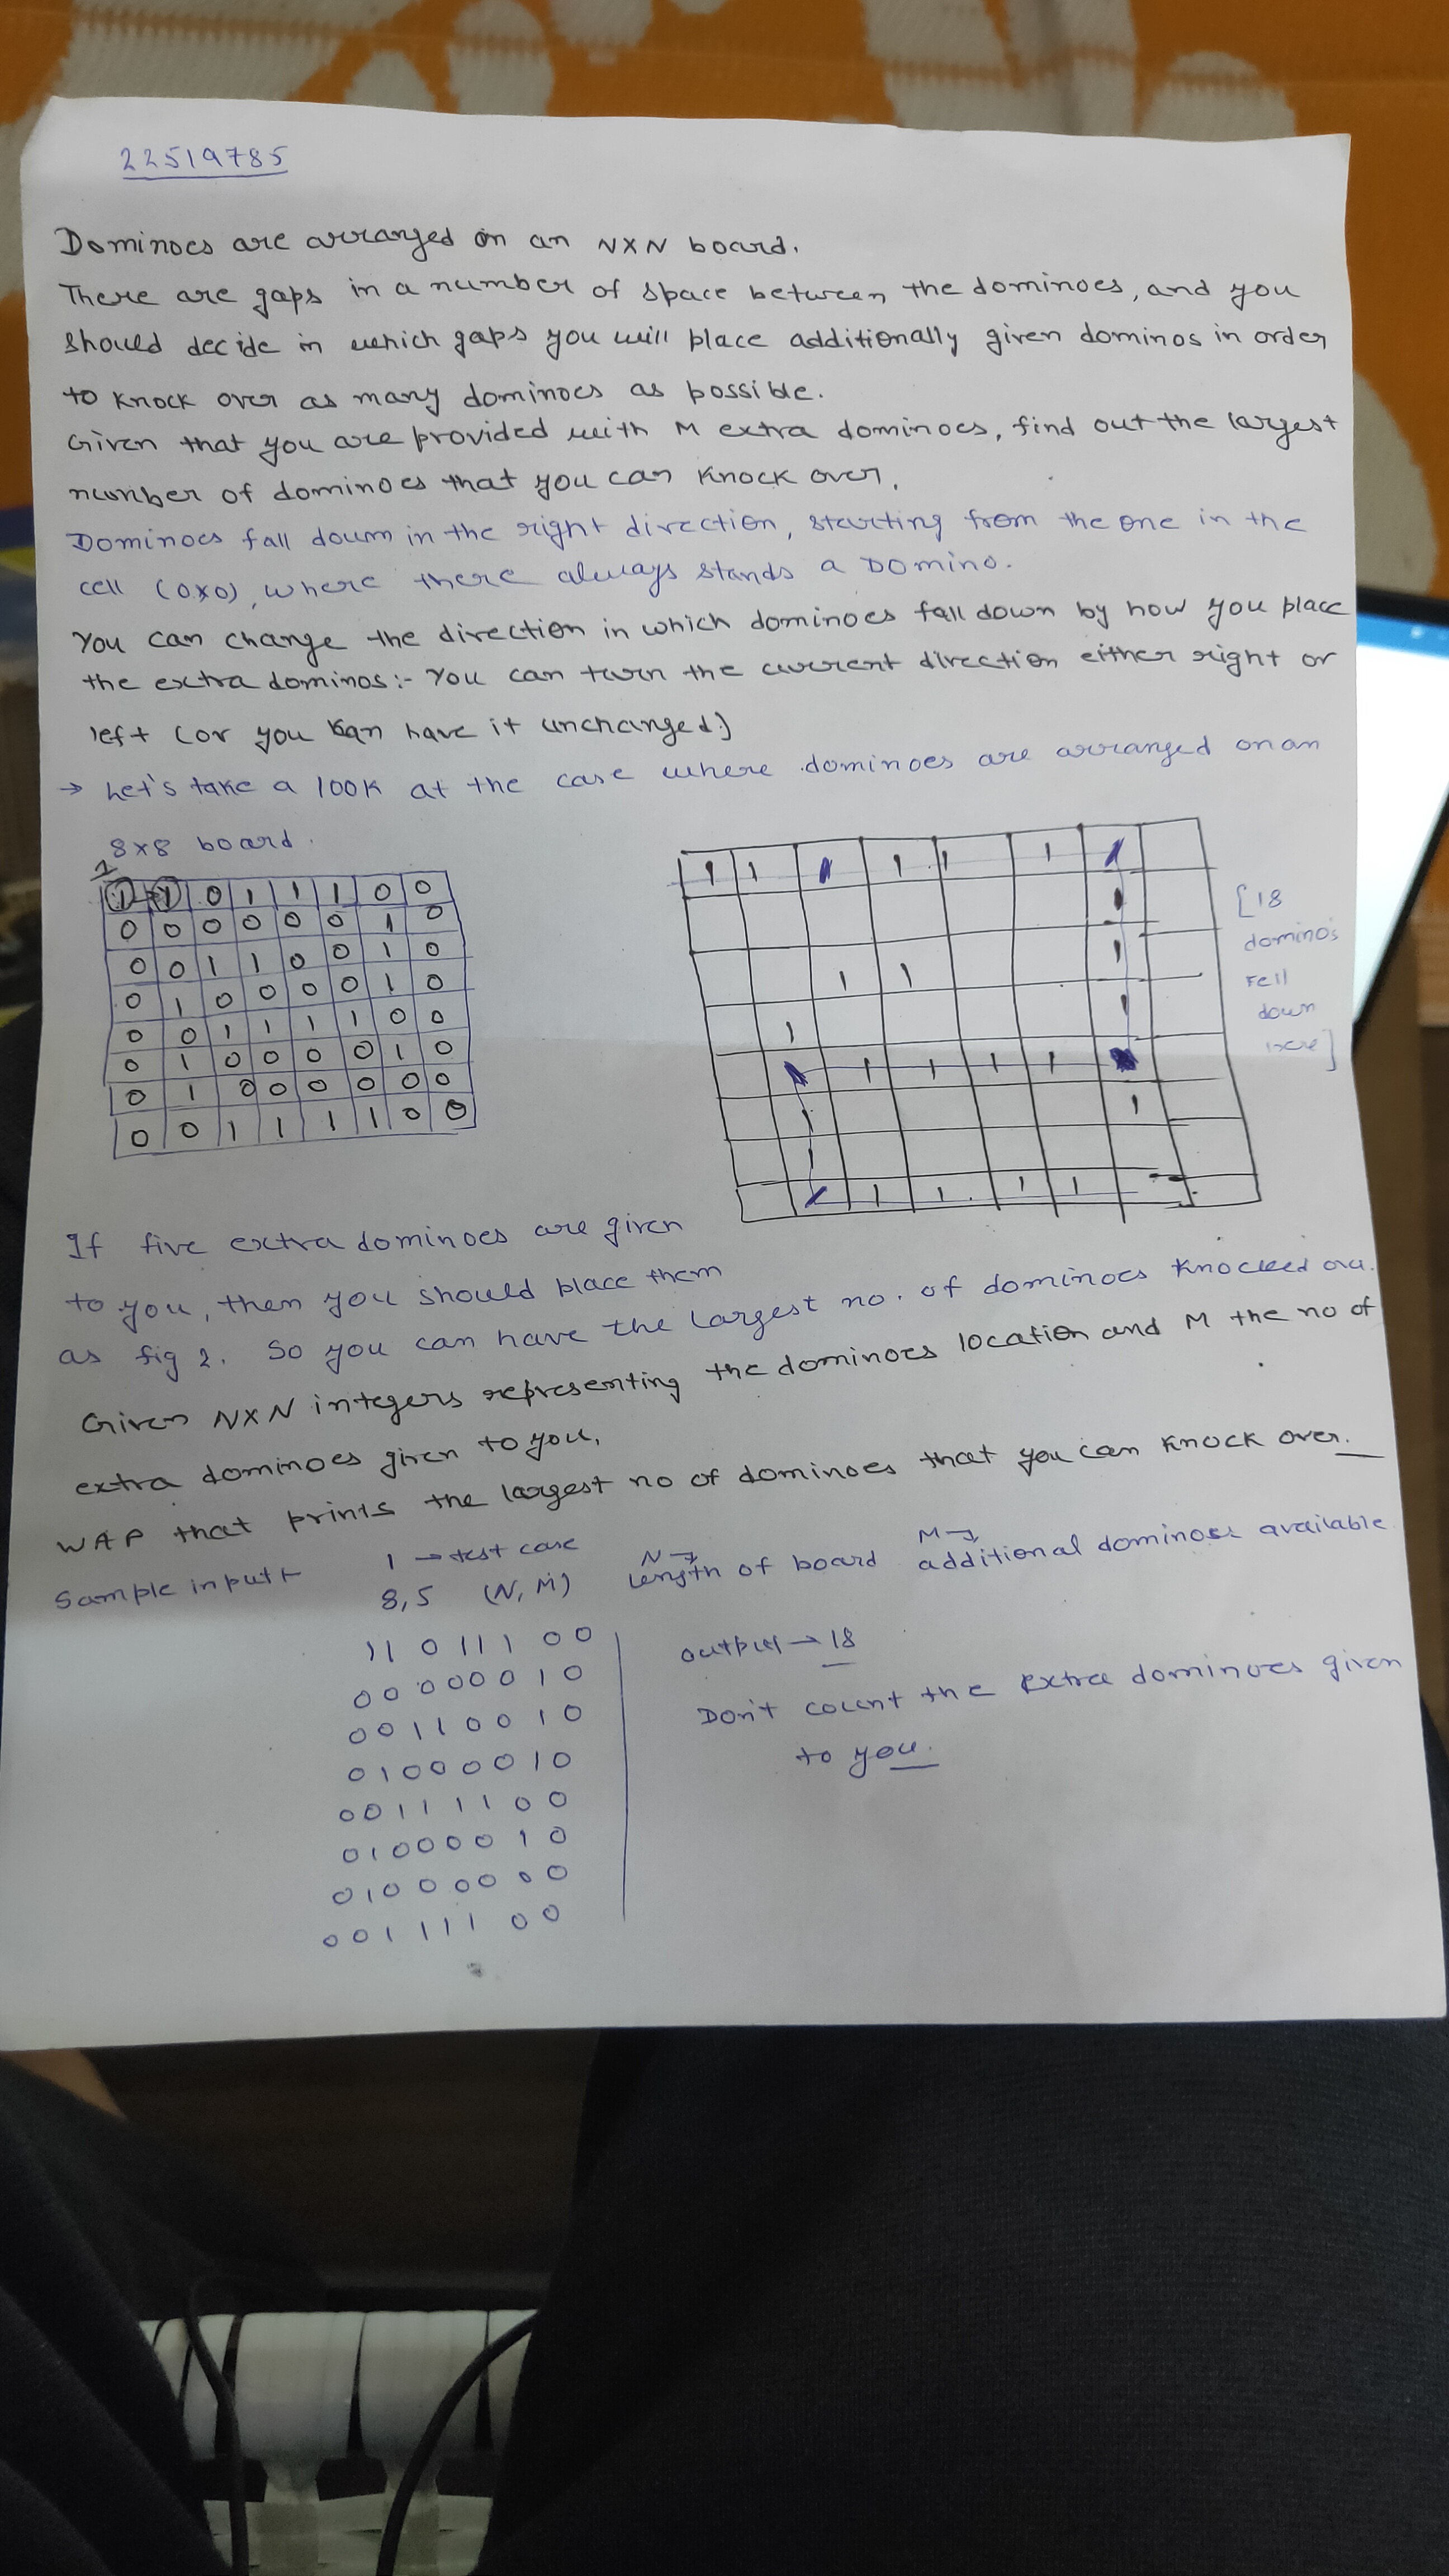 22519785
Dominoes are arranged on an NXN board.
There are gaps in a number of space between the dominoes, and you
should decide in which gaps you will place additionally given dominos in order
to knock over as many dominoes as possible.
Given that you are provided with M extra dominoes, find out the largest
number of dominoes that you can knock over.
Dominoes fall down in the right direction, starting from the one in the
cell (0x0), where there always stands a Domino.
You can change the direction in which dominoes fall down by how you place
the extra dominos:- You can turn the current direction either right or
left (or you can have it unchanged)
→ Let's take a look at the case where dominoes are arranged on an
8x8 board.
1 1 0 1 1 1 0 0
0 0 0 0 0 0 1 0
0 0 1 1 0 0 1 0
0 1 0 0 0 0 1 0
0 0 1 1 1 1 0 0
0 1 0 0 0 0 1 0
0 1 0 0 0 0 0 0
0 0 1 1 1 1 0 0
[18
domino's
Fell
down
here]
If five extra dominoes are given
to you, then you should place them
as fig 2. So you can have the largest no. of dominoes knocked ova.
Given NXN integers representing the dominoes location and M the no of
extra dominoes given to you,
WAP that prints the largest no of dominoes that you can knock over.
Sample input
1 → test case
8,5 (N, M)
N → length of board
M → additional dominoes available
1 1 0 1 1 1 0 0
0 0 0 0 0 0 1 0
0 0 1 1 0 0 1 0
0 1 0 0 0 0 1 0
0 0 1 1 1 1 0 0
0 1 0 0 0 0 1 0
0 1 0 0 0 0 0 0
0 0 1 1 1 1 0 0
output → 18
Don't count the extra dominoes given
to you.